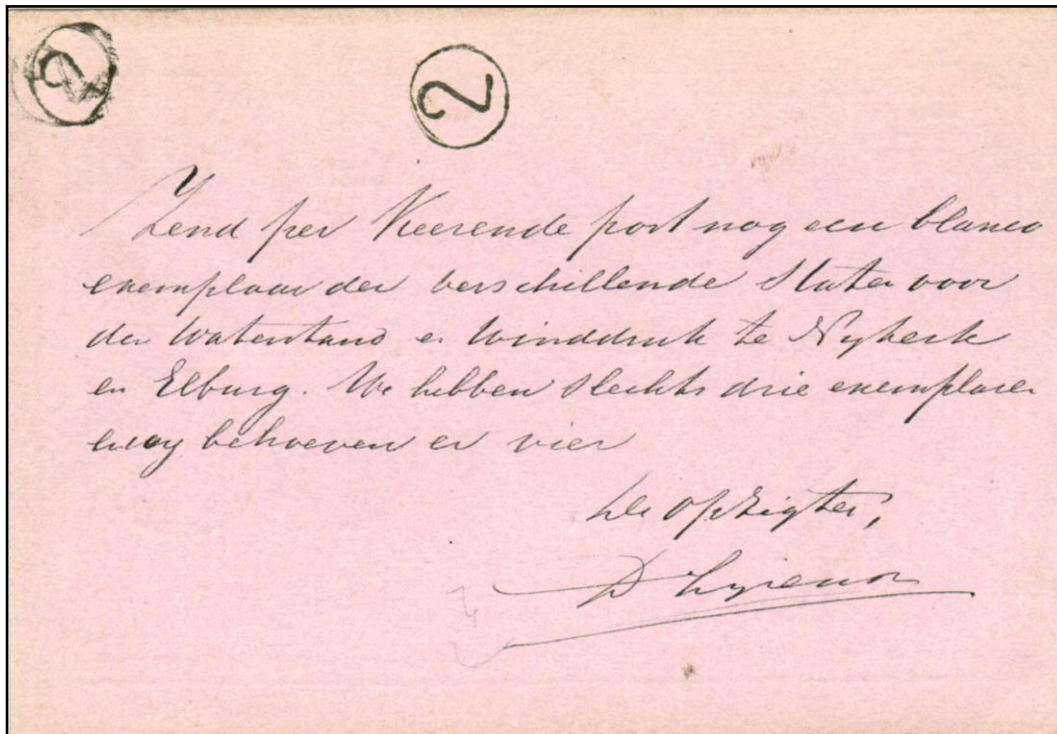 2 2
Zend per Keerende post nog een blanco
exemplaar der verschillende Staten voor
den Waterstand en Winddruk te Nykerk
en Elburg. We hebben slechts drie exemplaren
en behoeven er vier
De Opzigter,
D